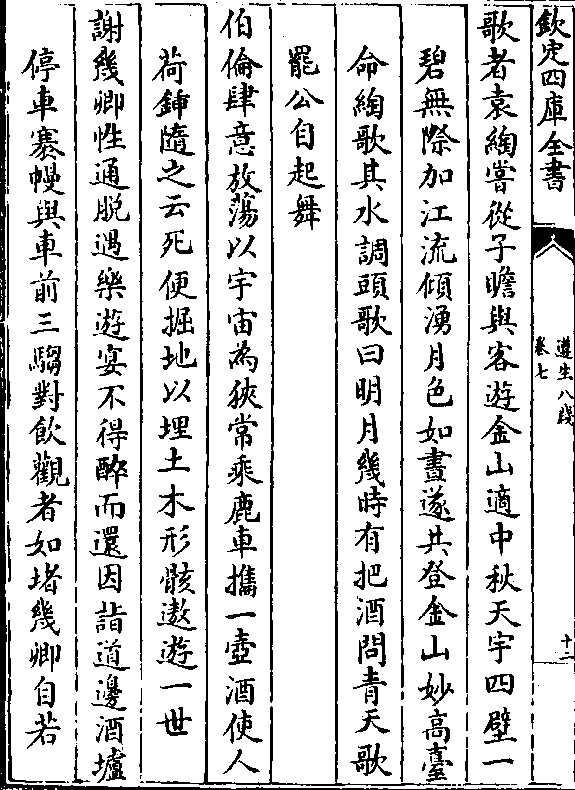 欽定四庫全書
遵生八牋
卷七
十二
歌者袁綯嘗從子瞻與客遊金山適中秋天宇四壁一
碧無際加江流傾湧月色如晝遂共登金山妙高臺
命綯歌其水調頭歌曰明月幾時有把酒問青天歌
罷公自起舞
伯倫肆意放蕩以宇宙為狹常乘鹿車攜一壺酒使人
荷鍤隨之云死便掘地以埋土木形骸遨遊一世
謝幾卿性通脫遇樂遊宴不得醉而還因詣道邊酒壚
停車褰幔與車前三騶對飲觀者如堵幾卿自若